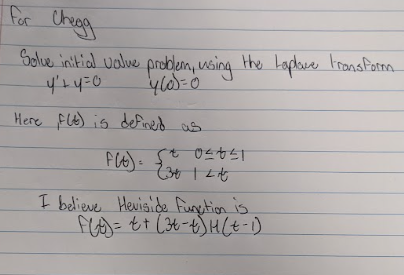 For Chegg
Solve initial value problem, using the Laplace transform
y'+y=0 y(0)=0
Here f(t) is defined as
f(t)= { t 0≤t≤1
{ 3t 1<t
I believe Heviside Function is
f(t)= t+(3t-t)H(t-1)